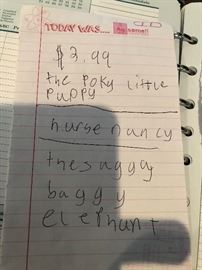 TODAY WAS....
$2,99
the poky little
puppy
nurse nancy
the saggy
baggy
elephant